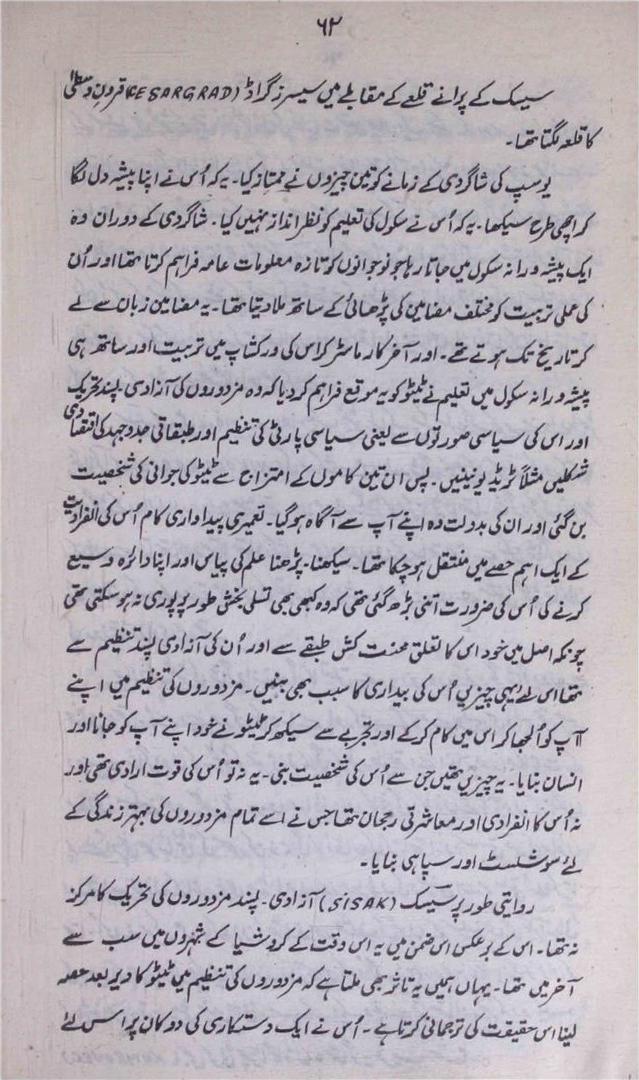 ۶۲
سیسک کے پرانے قلعے کے مقابلے میں سیسرزگراڈ (CESARGRAD) قرون وسطیٰ
کا قلعہ لگتا تھا۔
یوسپ کی شاگردی کے زمانے کو تین چیزوں نے ممتاز کیا۔ یہ کہ اُس نے اپنا پیشہ دل لگا
کر اچھی طرح سیکھا۔ یہ کہ اُس نے سکول کی تعلیم کو نظر انداز نہیں کیا۔ شاگردی کے دوران وہ
ایک پیشہ ورانہ سکول میں جاتا رہا جو نوجوانوں کو تازہ معلومات عامہ فراہم کرتا تھا اور اُن
کی عملی تربیت کو مختلف مضامین کی پڑھائی کے ساتھ ملا دیتا تھا۔ یہ مضامین زبان سے لے
کر تاریخ تک ہوتے تھے۔ اور آخر کار ماسٹر کراس کی ورکشاپ میں تربیت اور ساتھ ہی
پیشہ ورانہ سکول میں تعلیم نے ٹیٹو کو یہ موقع فراہم کر دیا کہ وہ مزدوروں کی آزادی۔ پسند تحریک
اور اس کی سیاسی صورتوں سے یعنی سیاسی پارٹی کی تنظیم اور طبقاتی جدوجہد کی اقتصادی
شکلیں مثلاً ٹریڈ یونینیں۔ پس ان تین کاموں کے امتزاج سے ٹیٹو کی جوانی کی شخصیت
بن گئی اور ان کی بدولت وہ اپنے آپ سے آگاہ ہو گیا۔ تعمیری پیداواری کام اُس کی انفرادیت
کے ایک اہم حصے میں منتقل ہو چکا تھا۔ سیکھنا۔ پڑھنا علم کی پیاس اور اپنا دائرہ وسیع
کرنے کی اُس کی ضرورت اتنی بڑھ گئی تھی کہ وہ کبھی بھی تسلی بخش طور پر پوری نہ ہو سکتی تھی
چونکہ اصل میں خود اس کا تعلق محنت کش طبقے سے اور اُن کی آزادی پسند تنظیم سے
تھا اس لئے یہی چیزیں اُس کی بیداری کا سبب بھی بنیں۔ مزدوروں کی تنظیم میں اپنے
آپ کو اُلجھا کر اس میں کام کر کے اور تجربے سے سیکھ کر ٹیٹو نے خود اپنے آپ کو جانا اور
انسان بنایا۔ یہ چیزیں تھیں جن سے اُس کی شخصیت بنی۔ یہ نہ تو اُس کی قوت ارادی تھی اور
نہ اُس کا انفرادی اور معاشرتی رجحان تھا جس نے اسے تمام مزدوروں کی بہتر زندگی کے
لئے سوشلسٹ اور سپاہی بنایا۔
روایتی طور پر سیسک (SiSAK) آزادی۔ پسند مزدوروں کی تحریک کا مرکز
نہ تھا۔ اس کے برعکس اس ضمن میں یہ اس وقت کے کروشیا کے شہروں میں سب سے
آخر میں تھا۔ یہاں ہمیں یہ تاثر بھی ملتا ہے کہ مزدوروں کی تنظیم میں ٹیٹو کا دیر بعد حصہ
لینا اس حقیقت کی ترجمانی کرتا ہے۔ اُس نے ایک دستکاری کی دوکان پر اس لئے